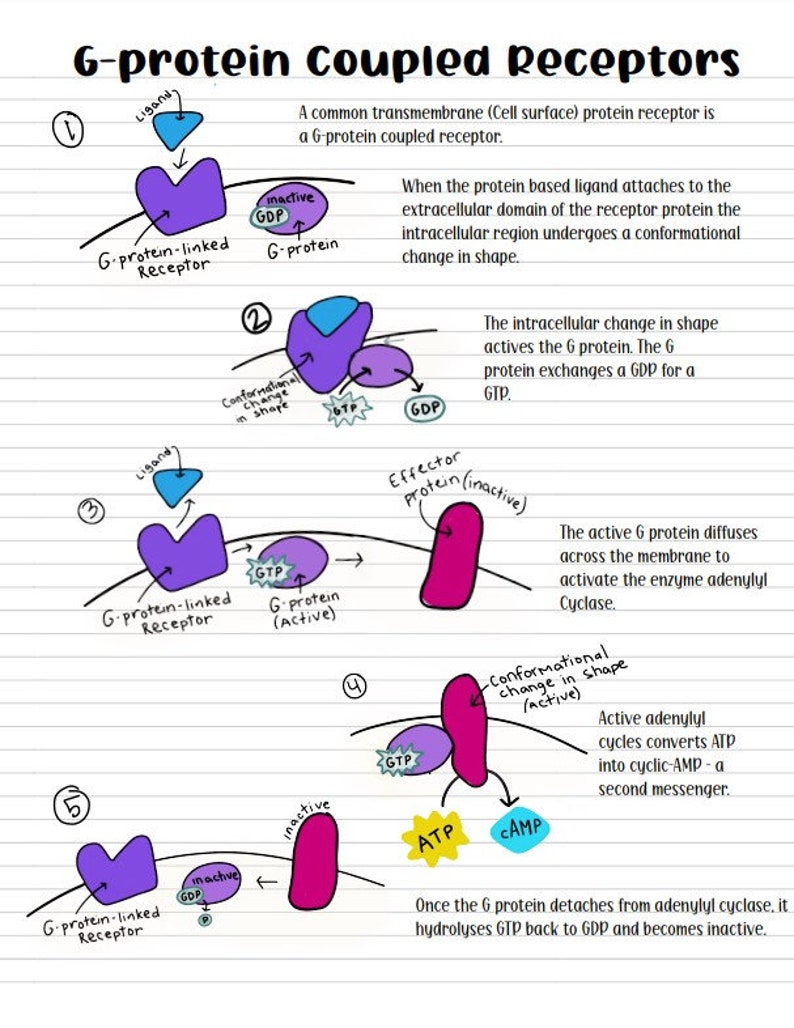 G-protein Coupled Receptors
1
Ligand
A common transmembrane (Cell surface) protein receptor is
a G-protein coupled receptor.
inactive
GDP
G-protein-linked
Receptor
G-protein
When the protein based ligand attaches to the
extracellular domain of the receptor protein the
intracellular region undergoes a conformational
change in shape.
2
Conformational
change
in shape
GTP
GDP
The intracellular change in shape
actives the G protein. The G
protein exchanges a GDP for a
GTP.
3
Ligand
Effector
protein (inactive)
GTP
G-protein-linked
Receptor
G-protein
(Active)
The active G protein diffuses
across the membrane to
activate the enzyme adenylyl
Cyclase.
4
Conformational
change in shape
(Active)
GTP
ATP
cAMP
Active adenylyl
cycles converts ATP
into cyclic-AMP - a
second messenger.
5
inactive
inactive
GDP
P
G-protein-linked
Receptor
Once the G protein detaches from adenylyl cyclase, it
hydrolyses GTP back to GDP and becomes inactive.